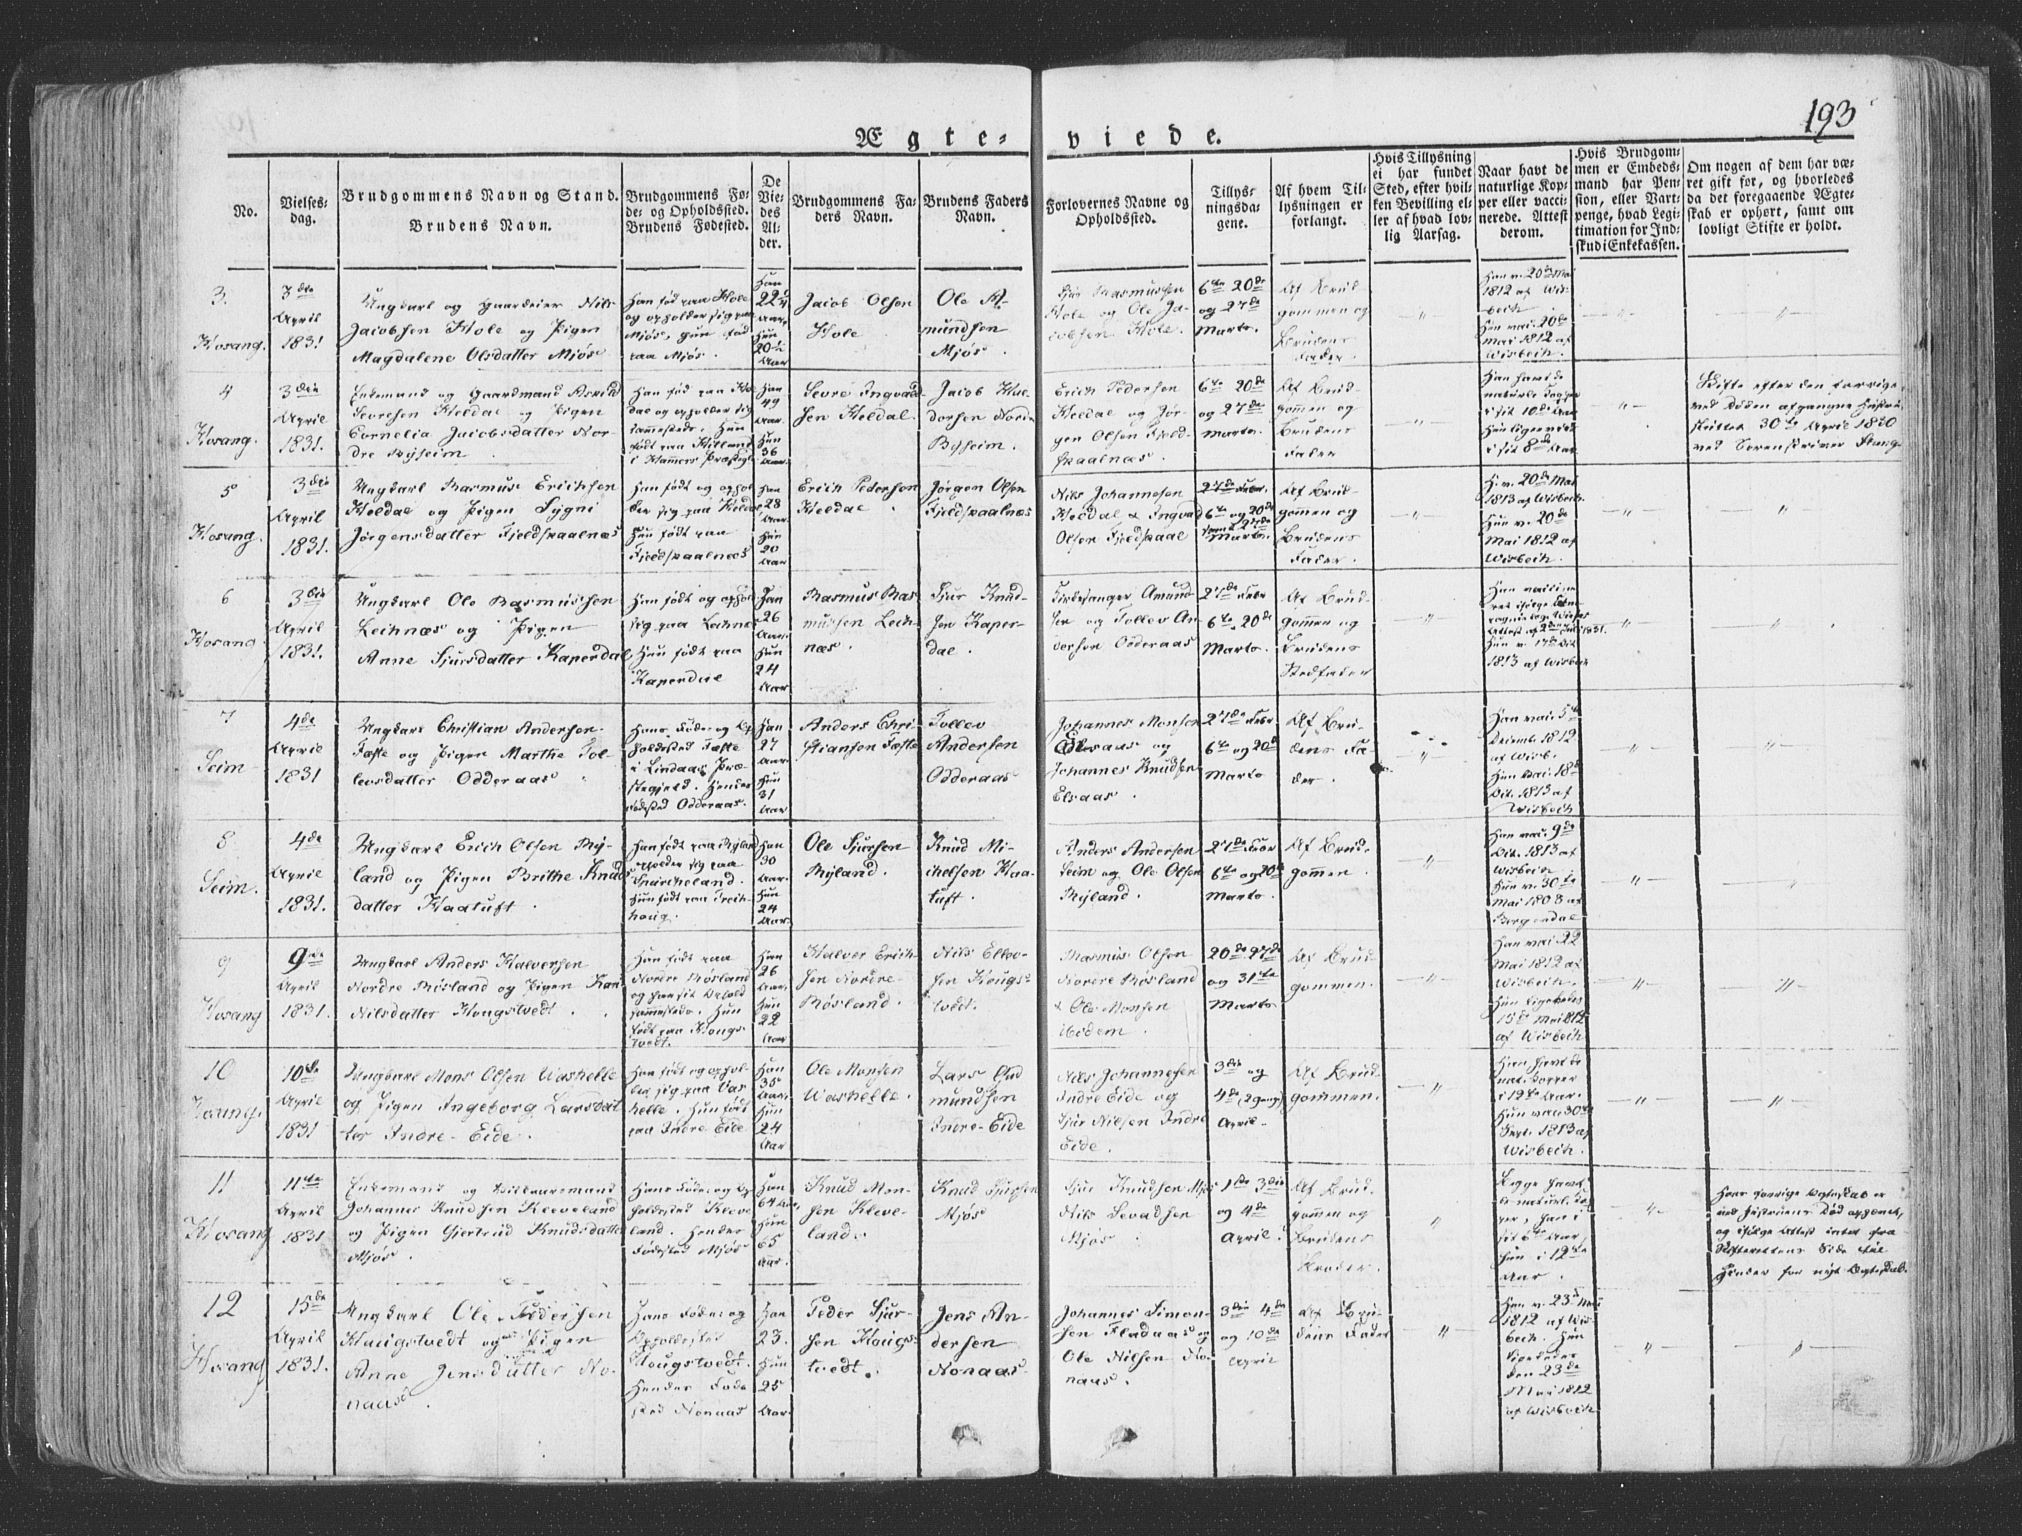 193
Ægte-viede.
No.
Vielses-
dag.
Brudgommens Navn og Stand.
Brudens Navn.
Brudgommens Fø-
de- og Opholdssted.
Brudens Fødested.
De
Vie-
des
Al-
der.
Brudgommens Fa-
ders Navn.
Brudens Faders
Navn.
Forlovernes Navne og
Opholdssted.
Tillys-
ningsda-
gene.
Af hvem Til-
lysningen er
forlangt.
Hvis Tillysning
ei har fundet
Sted, efter hvil-
ken Bevilling el-
ler af hvad lov-
lig Aarsag.
Naar havt de
naturlige Kop-
per eller vacci-
nerede. Attest
derom.
Hvis Brudgom-
men er Embeds-
mand har Pen-
sion, eller Vart-
penge, hvad Legi-
timation for Ind-
skud i Enkekassen.
Om nogen af dem har væ-
ret gift før, og hvorledes
da det foregaaende Ægte-
skab er ophørt, samt om
lovligt Skifte er holdt.
3.
Hosang.
3die
April
1831
Ungkarl og Gaardeier Nils
Jacobsen Hole og Pigen
Magdalene Olsdatter Mjøs
Han fød paa Hole
og opholder sig paa
Mjøs, Hun fød
paa Mjøs.
Jacob Olsen
Hole
Ole A-
mundsen
Mjøs.
Sjur Rasmussen
Hole og Ole Ja-
cobsen Hole.
6te 20de
og 27de
Marts.
Af Brud-
gommen og
Brudens
Fader.
Han v. 20de Mai
1812 af Wis-
bech
Hun vac. 20de
Mai 1812 af
Wisbech.
4
Hosang.
3die
April
1831.
Enkemand og Gaardmand
Sevresen Heldal og Pigen
Cornelia Jacobsdatter Nor-
dre Byseim
Han
49
Aar.
Hun
36
Aar.
Sevre Ingvald-
sen Heldal.
Jacob Hal-
dorsen Nordre
Byseim.
Erich Pedersen
Heldal og Jør-
gen Olsen Fjeld-
skaalnæs.
6te 20de
og 27de
Marts.
Af Brud-
gommen og
Brudens
Fader
Skifte efter den forrige,
ved Døden afgangne Hustru,
sluttet 30te April 1830
ved Sorenskriver Stang
5
Hosang.
3die
April
1831.
Ungkarl Rasmus Erichsen
Heldal og Pigen Sygni
Jørgensdatter Fjeldskaalnæs
Han født og ophol-
der sig paa Heldal,
Hun født paa
Fjeldskaalnæs
Han
28
Aar
Hun
20
Aar
Erich Pedersen
Heldal.
Jørgen Olsen
Fjeldskaalnæs
Nils Johannesen
Heldal & Ingvald
Olsen Fjeldskaal
27de Febr.
6te og 20de
samt 27de
Marts.
Af Brud-
gommen og
Brudens
Fader.
H. v. 20de Mai
1813 af Wisbech.
Hun v. 20de
Mai 1812 af
Wisbech
6
Hosang
3die
April
1831.
Ungkarl Ole Rasmussen
Leiknæs og Pigen
Anne Sjursdatter Kaperdal
Han født og ophol-
sig paa Leiknæs
Hun født paa
Kaperdal
Han
26
Aar.
Hun
24
Aar
Rasmus Ras-
mussen Leik-
næs.
Sjur Knud-
sen Kaper-
dal.
Kirkesanger Amund-
sen og Tollev An-
dersen Odderaas
27de Febr
6te 20de
Marts.
Af Brud-
gommen og
Brudens
Stedfader
7
Seim
4de
April
1831
Ungkarl Christian Andersen
Fæste og Pigen Marthe Tol-
levsdatter Odderaas
Hans Føde- og Op-
holdssted Fæste
i Lindaas Præ-
stegjeld. Hendes
Fødested Odderaas.
Han
27
Aar
Hun
31
Aar
Anders Chri-
stiansen Fæste
Tollev
Andersen
Odderaas
Johannes Monsen
Elsaas og
Johannes Knudsen
Elsaas.
27de Febr
6te og 20de
Marts
Af Bru-
dens Fa-
der.
Han vac. 5te
Decemb 1812
af Wisb.
Hun vac. 18de
Oct. 1813 af
Wisbech
8
Seim.
4de
April
1831.
Ungkarl Erich Olsen Ry-
land og Pigen Brithe Knuds-
datter Haatuft.
Han
30
Aar.
Hun
24
Aar.
Ole Sjursen
Ryland.
Knud Mi-
chelsen Haa-
tuft.
Anders Andersen
Seim og Ole Olsen
Ryland.
27de Febr
6te og 20de
Marts.
Af Brud-
gommen.
Han vac. 9de
Oct. 1813 af
Wisbech
Hun v. 30te
Mai 1808 af
Bergendal
9
Hosang
9de
April
1831.
Ungkarl Anders Halversen
Nordre Røsland og Pigen Kari
Nilsdatter Hougstvedt.
Han født paa
Nordre Røsland
og har sit Ophold
sammesteds. Hun
født paa Hougs-
tvedt.
Han
26
Aar.
Hun
22
Aar
Halver Erich-
sen Nordre
Røsland.
Nils Ellev-
sen Hougs-
tvedt.
Rasmus Olsen
Nordre Røsland
& Ole Monsen
ibidem.
20de 27de
og 31te
Marts
Af Brud-
gommen.
Han vac. 22
Mai 1812 af
Wisbech.
Hun ligeledes
15de Mai 1812
af Wisbech
10
10de
April
1831
Ungkarl Mons Olsen Washelle
og Pigen Ingeborg Larsdat-
ter Indre-Eide.
Han født og ophol-
der sig paa Vas-
helle. Hun født
paa Indre Eide
Han
35
Aar.
Hun
24
Aar
Ole Monsen
Washelle.
Lars Gud-
mundsen
Indre-Eide
Nils Johannesen
Indre Eide og
Sjur Nilsen Indre
Eide.
3die og
4de (2 gang)
April.
Af Brud-
gommen.
Han havt de
nat. Kopper
i 19de Aar.
Hun vac. 30te
Sept. 1813 af
Wisbech.
11
Hosang
11te
April
1831
Enkemand og
Johannes Knudsen Kleveland
og Pigen Gjertrud Knudsdatter
Mjøs.
Hans Føde- og Op-
holdssted Kleve-
land. Hendes
Fødested Mjøs
Han
64 Aar,
Hun
65
Aar.
Knud Mon-
sen Kleve-
land.
Knud Sjursen
Mjøs
Sjur Knudsen Mjøs
Nils Sevadsen
Mjøs
1ste 3die
og 4de
April.
Af Brud-
gommen og
Brudens
Broder.
Begge havt
de naturl. Kop-
per, han i
sit 6te Aar,
hun i 12te
Aar.
Hans forrige Ægteskab er
ved Hustruens Død ophævet,
og ifølge Attest intet fra
Skifterettens Side til
Hinder for nyt Ægteskab.
12
Hosang
15de
April
1831.
Ungkarl Ole Pedersen
Haugstvedt og Pigen
Anne Jensdatter No-
naas.
Hans Føde- og
Opholdssted
Hougstvedt.
Hendes Føde-
sted Nonaas
Han
23.
Hun
25
Aar.
Peder Sjur-
sen Hougs-
tvedt.
Jens An-
dersen
Nonaas
Johannes Simon-
sen Fladaas og
Ole Nilsen No-
naas.
3die 4de
og 10de
April
Af Bru-
dens Fader
Han v. 23de Mai
1812 af Wis-
bech. Hun
ligeledes
den 23de
Mai 1812
af Wisbech